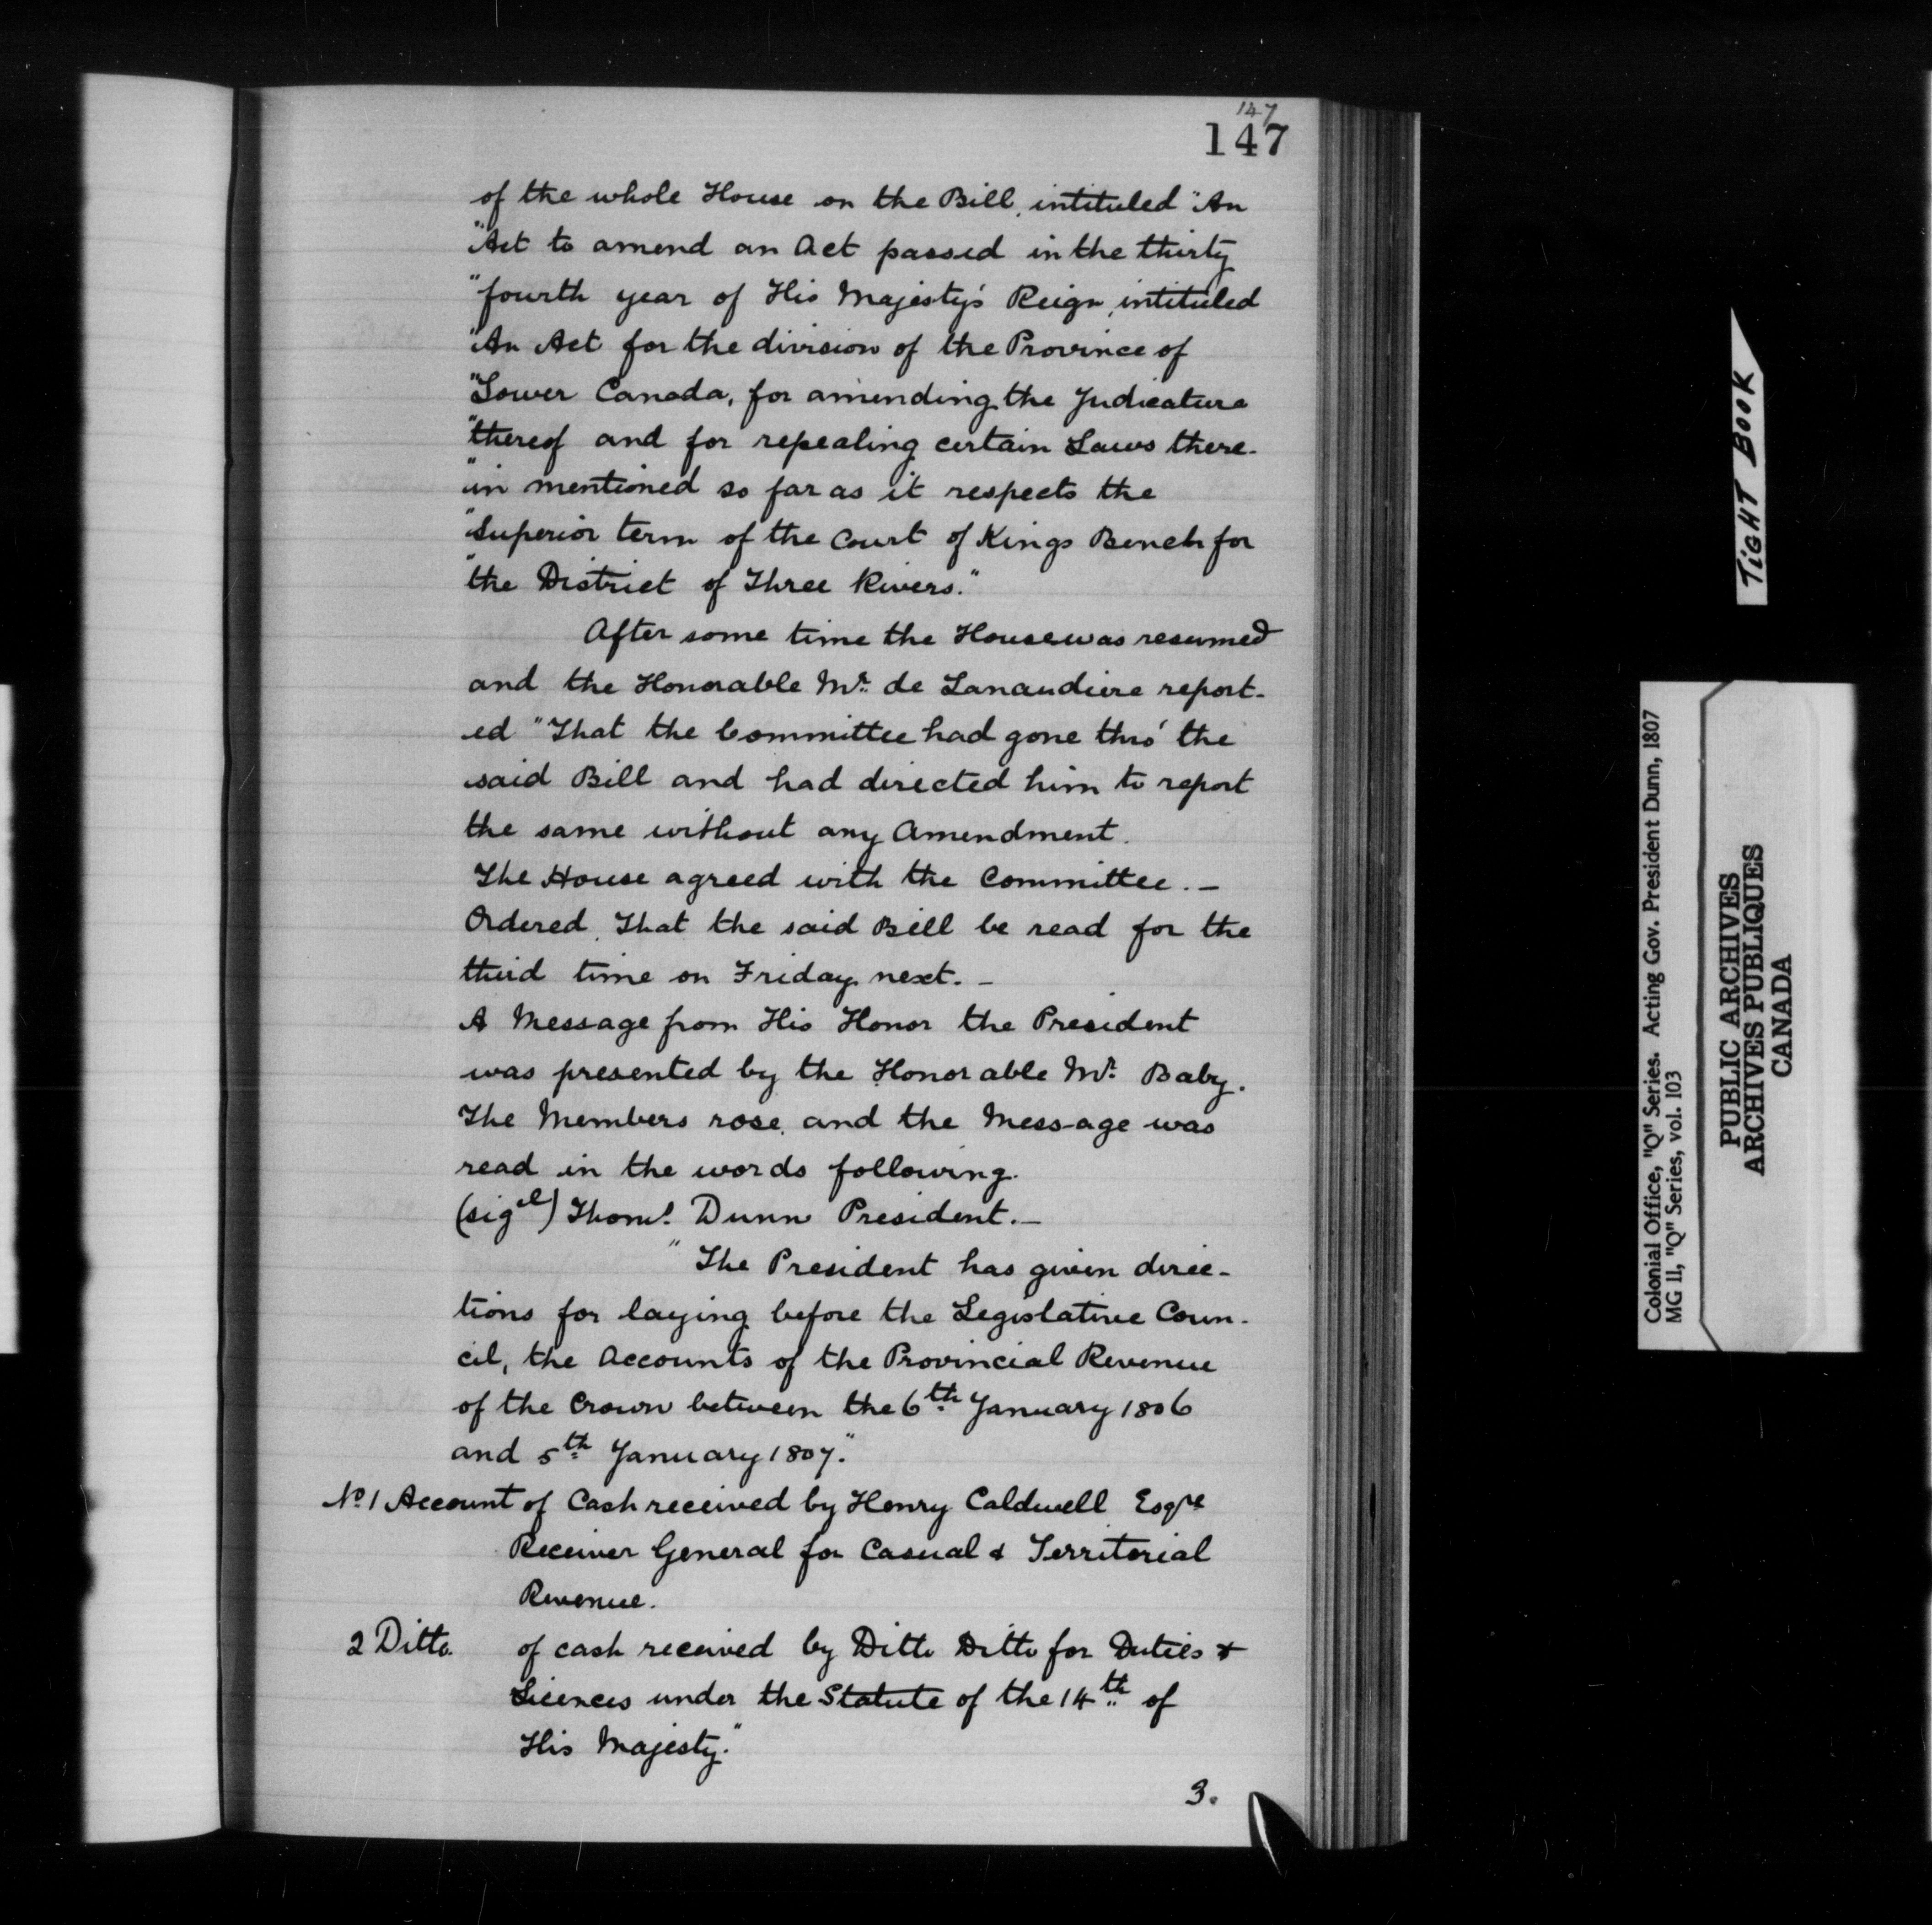 147
147
of the whole House on the Bill, intituled "An
"Act to amend an Act passed in the thirty
"fourth year of His Majesty's Reign, intituled
"An Act for the division of the Province of
"Lower Canada, for amending the Judicature
"thereof and for repealing certain Laws there-
"in mentioned so far as it respects the
"Superior term of the Court of Kings Bench for
"the District of Three Rivers."
After some time the House was resumed
and the Honorable Mr. de Lanaudiere report-
ed "That the Committee had gone thro' the
said Bill and had directed him to report
the same without any Amendment.
The House agreed with the Committee. –
Ordered, That the said Bill be read for the
third time on Friday next. –
A Message from His Honor the President
was presented by the Honorable Mr. Baby.
The Members rose, and the Message was
read in the words following.
(sigd) Thoms. Dunn President. –
"The President has given direc-
tions for laying before the Legislative Coun-
cil, the Accounts of the Provincial Revenue
of the Crown between the 6th January 1806
and 5th January 1807."
No. 1 Account of Cash received by Henry Caldwell Esqre
Receiver General for Casual & Territorial
Revenue.
2 Ditto. of cash received by Ditto Ditto for Duties &
Licences under the Statute of the 14th of
His Majesty."
3.
TIGHT BOOK
Colonial Office, "Q" Series. Acting Gov. President Dunn, 1807
MG 11, "Q" Series, vol. 103
PUBLIC ARCHIVES
ARCHIVES PUBLIQUES
CANADA